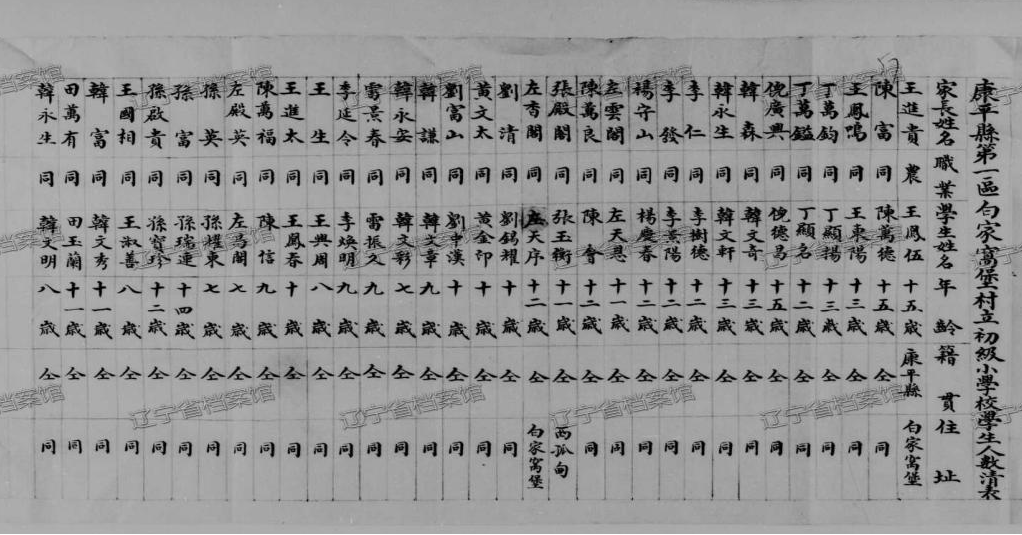 康平縣第一區白家窩堡村立初級小學校學生人數清表
家長姓名 職業 學生姓名 年齡 籍貫 住址
王進貴 農 王鳳伍 十五歲 康平縣 白家窩堡
陳富 同 陳萬德 十五歲 仝 同
王鳳鳴 同 王東陽 十三歲 仝 同
丁萬鈞 同 丁顯揚 十三歲 仝 同
丁萬鎰 同 丁顯名 十二歲 仝 同
倪廣興 同 倪德昌 十五歲 仝 同
韓森 同 韓文奇 十三歲 仝 同
韓永生 同 韓文軒 十三歲 仝 同
李仁 同 李樹德 十二歲 仝 同
李發 同 李景陽 十三歲 仝 同
楊守山 同 楊慶春 十二歲 仝 同
左雲閣 同 左天恩 十一歲 仝 同
陳萬良 同 陳會 十二歲 仝 同
張殿閣 同 張玉衡 十一歲 仝 西孤甸
左香閣 同 左天序 十二歲 仝 白家窩堡
劉清 同 劉錫耀 十歲 仝 同
黃文太 同 黃金印 十歲 仝 同
劉富山 同 劉中漢 十歲 仝 同
韓謙 同 韓文章 九歲 仝 同
韓永安 同 韓文彩 七歲 仝 同
雷景春 同 雷振久 九歲 仝 同
李延令 同 李煥明 九歲 仝 同
王生 同 王興周 八歲 仝 同
王進太 同 王鳳春 十歲 仝 同
陳萬福 同 陳信 九歲 仝 同
左殿英 同 左昌閣 七歲 仝 同
孫英 同 孫耀東 七歲 仝 同
孫富 同 孫瑞連 十四歲 仝 同
孫啟貴 同 孫寶珍 十二歲 仝 同
王國相 同 王淑善 八歲 仝 同
韓富 同 韓文秀 十一歲 仝 同
田萬有 同 田玉蘭 十一歲 仝 同
韓永生 同 韓文明 八歲 仝 同
辽宁省档案馆
辽宁省档案馆
辽宁省档案馆
辽宁省档案馆
辽宁省档案馆
辽宁省档案馆
辽宁省档案馆
辽宁省档案馆